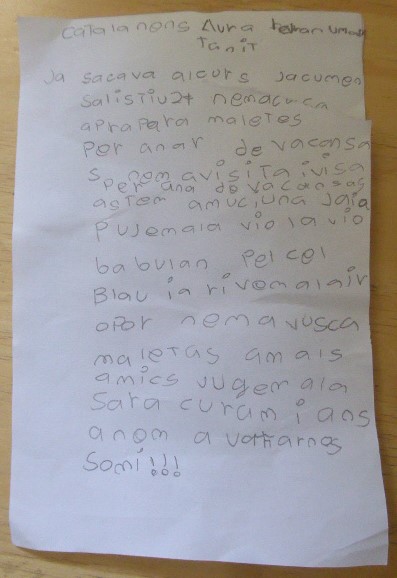 catalanons Aura
Tanit
Ja sacava alcurs jacumen
salistiu2t nemacaca
aprapara maletes
Per anar de vacansa
s nem avisita ivisa
per ana de vacansas
astem amuciuna jaia
Pujemala vio la vio
babulan pel cel
Blau ia rivemalair
opor nemavusca
maletas amals
amics jugem ala
Sara curam i ans
anom a vatharnos
Somi!!!